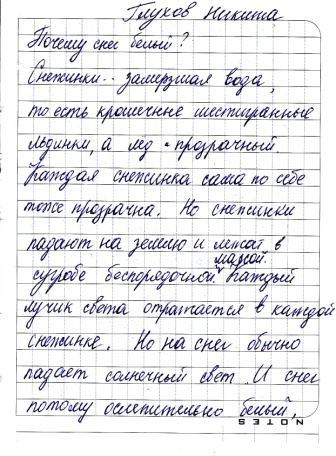 Глухов Никита
Почему снег белый?
Снежинки - замерзшая вода,
то есть крошечные шестигранные
льдинки, а лед - прозрачный.
Каждая снежинка сама по себе
тоже прозрачна. Но снежинки
падают на землю и лежат в
массой.
сугробе беспорядочной. Каждый
лучик света отражается в каждой
снежинке. Но на снег обычно
падает солнечный свет. И снег
потому ослепительно белый.
NOTES